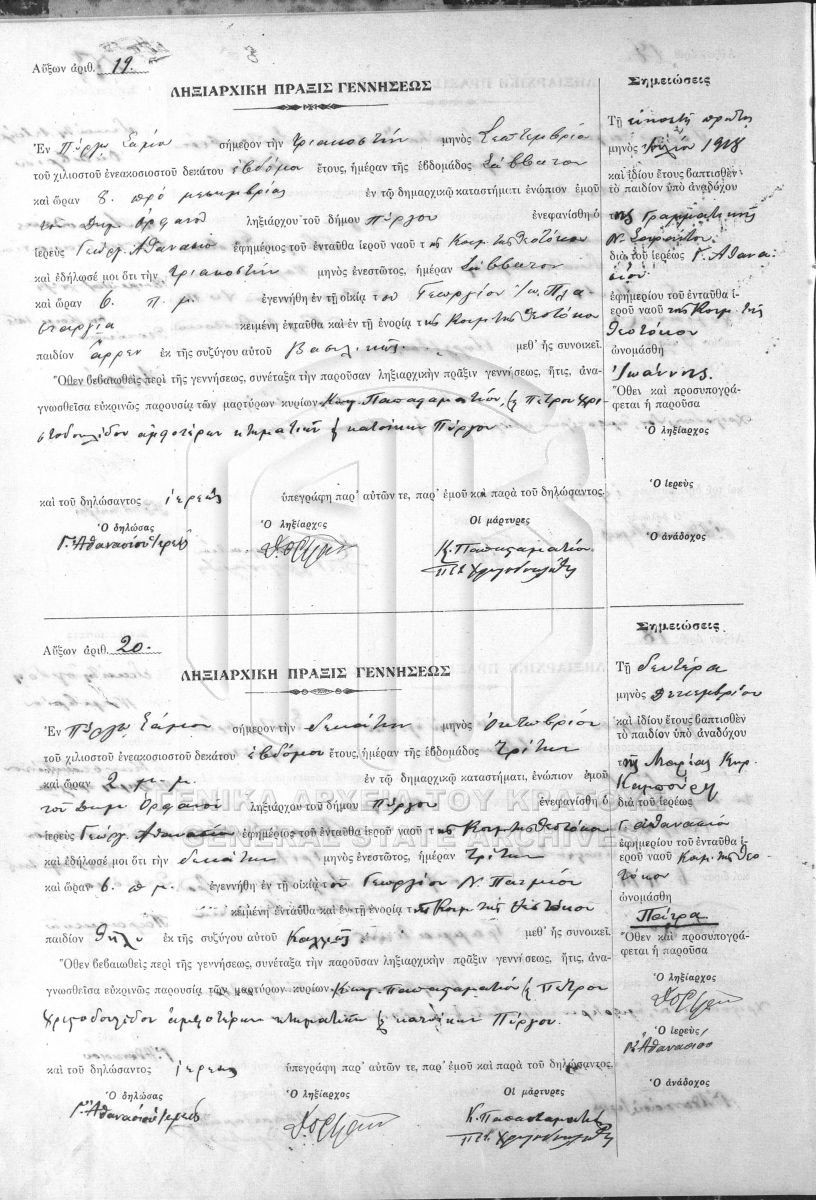 Αὔξων ἀριθ. 19.
ΛΗΞΙΑΡΧΙΚΗ ΠΡΑΞΙΣ ΓΕΝΝΗΣΕΩΣ
Ἐν Πύργῳ Σάμου σήμερον τὴν τριακοστὴν μηνὸς Σεπτεμβρίου
τοῦ χιλιοστοῦ ἐνεακοσιοστοῦ δεκάτου ἑβδόμου ἔτους, ἡμέραν τῆς ἑβδομάδος Σάββατον
καὶ ὥραν 8. πρὸ μεσημβρίας ἐν τῷ δημαρχικῷ καταστήματι ἐνώπιον ἐμοῦ
τοῦ Δημ. Ὀρφανοῦ ληξιάρχου τοῦ δήμου Πύργου ἐνεφανίσθη ὁ
ἱερεὺς Γεώργ. Ἀθανασίου ἐφημέριος τοῦ ἐνταῦθα ἱεροῦ ναοῦ της Κοιμ. της Θεοτόκου
καὶ ἐδήλωσέ μοι ὅτι τὴν τριακοστὴν μηνὸς ἐνεστῶτος, ἡμέραν Σάββατον
καὶ ὥραν 6. π. μ. ἐγεννήθη ἐν τῇ οἰκίᾳ του Γεωργίου Ἰω.
κειμένῃ ἐνταῦθα καὶ ἐν τῇ ἐνορίᾳ της Κοιμ. της Θεοτόκου
παιδίον ἄρρεν ἐκ τῆς συζύγου αὐτοῦ Βασιλικῆς μεθ' ἧς συνοικεῖ.
Ὅθεν βεβαιωθεὶς περὶ τῆς γεννήσεως, συνέταξα τὴν παροῦσαν ληξιαρχικὴν πρᾶξιν γεννήσεως, ἥτις, ἀνα-
γνωσθεῖσα εὐκρινῶς παρουσίᾳ τῶν μαρτύρων κυρίων Κωνστ. Παπασταματίου, & Πέτρου Χρι-
στοδουλίδου ἀμφοτέρων κτηματιῶν & κατοίκων Πύργου
καὶ τοῦ δηλώσαντος ἱερέως ὑπεγράφη παρ' αὐτῶν τε, παρ' ἐμοῦ καὶ παρὰ τοῦ δηλώσαντος.
Ὁ δηλώσας Ὁ ληξίαρχος Οἱ μάρτυρες
Γ. Ἀθανασίου Ἱερεύς
Κ. Παπασταματίου
Σημειώσεις
Τῇ εἰκοστῇ πρώτῃ
μηνὸς Ἰουλίου 1918
καὶ ἰδίου ἔτους βαπτισθὲν
τὸ παιδίον ὑπὸ ἀναδόχου
της Γραμματικῆς
Ν.
διὰ τοῦ ἱερέως Γ. Ἀθανα
σίου
ἐφημερίου τοῦ ἐνταῦθα ἱ-
εροῦ ναοῦ της Κοιμ. της
Θεοτόκου
ὠνομάσθη
Ἰωάννης.
Ὅθεν καὶ προσυπογρά-
φεται ἡ παροῦσα
Ὁ ληξίαρχος
Ὁ ἱερεὺς
Ὁ ἀνάδοχος
Αὔξων ἀριθ. 20.
ΛΗΞΙΑΡΧΙΚΗ ΠΡΑΞΙΣ ΓΕΝΝΗΣΕΩΣ
Ἐν Πύργῳ Σάμου σήμερον τὴν δεκάτην μηνὸς Ὀκτωβρίου
τοῦ χιλιοστοῦ ἐνεακοσιοστοῦ δεκάτου ἑβδόμου ἔτους, ἡμέραν τῆς ἑβδομάδος Τρίτην
καὶ ὥραν 2 μ. μ. ἐν τῷ δημαρχικῷ καταστήματι, ἐνώπιον ἐμοῦ
τοῦ Δημ. Ὀρφανοῦ ληξιάρχου τοῦ δήμου Πύργου ἐνεφανίσθη ὁ
ἱερεὺς Γεώργ. Ἀθανασίου ἐφημέριος τοῦ ἐνταῦθα ἱεροῦ ναοῦ της Κοιμ. της Θεοτόκου
καὶ ἐδήλωσέ μοι ὅτι τὴν δεκάτην μηνὸς ἐνεστῶτος, ἡμέραν Τρίτην
καὶ ὥραν 6. π. μ. ἐγεννήθη ἐν τῇ οἰκίᾳ του Γεωργίου Ν. Πατμίου
κειμένῃ ἐνταῦθα καὶ ἐν τῇ ἐνορίᾳ της Κοιμ. της Θεοτόκου
παιδίον θῆλυ ἐκ τῆς συζύγου αὐτοῦ μεθ' ἧς συνοικεῖ.
Ὅθεν βεβαιωθεὶς περὶ τῆς γεννήσεως, συνέταξα τὴν παροῦσαν ληξιαρχικὴν πρᾶξιν γεννήσεως, ἥτις, ἀνα-
γνωσθεῖσα εὐκρινῶς παρουσίᾳ τῶν μαρτύρων κυρίων Κωνστ. Παπασταματίου & Πέτρου
Χριστοδουλίδου ἀμφοτέρων κτηματιῶν & κατοίκων Πύργου.
καὶ τοῦ δηλώσαντος ἱερέως ὑπεγράφη παρ' αὐτῶν τε, παρ' ἐμοῦ καὶ παρὰ τοῦ δηλώσαντος.
Ὁ δηλώσας Ὁ ληξίαρχος Οἱ μάρτυρες
Γ. Ἀθανασίου Ἱερεύς Κ. Παπασταματίου
Σημειώσεις
Τῇ δευτέρᾳ
μηνὸς Δεκεμβρίου
καὶ ἰδίου ἔτους βαπτισθὲν
τὸ παιδίον ὑπὸ ἀναδόχου
της Μαρίας Κυρ.
διὰ τοῦ ἱερέως
Γ. Ἀθανασίου
ἐφημερίου τοῦ ἐνταῦθα ἱ-
εροῦ ναοῦ Κοιμ. της Θεο
τόκου
ὠνομάσθη
Ὅθεν καὶ προσυπογρά-
φεται ἡ παροῦσα
Ὁ ληξίαρχος
Ὁ ἱερεὺς
Γ. Ἀθανασίου
Ὁ ἀνάδοχος
ΓΕΝΙΚΑ ΑΡΧΕΙΑ ΤΟΥ ΚΡΑΤΟΥΣ
GENERAL STATE ARCHIVES